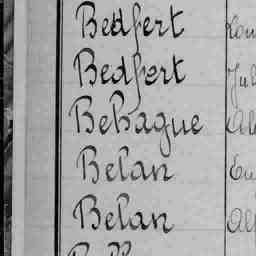 Bedfert
Bedfert
Behague
Belan
Belan